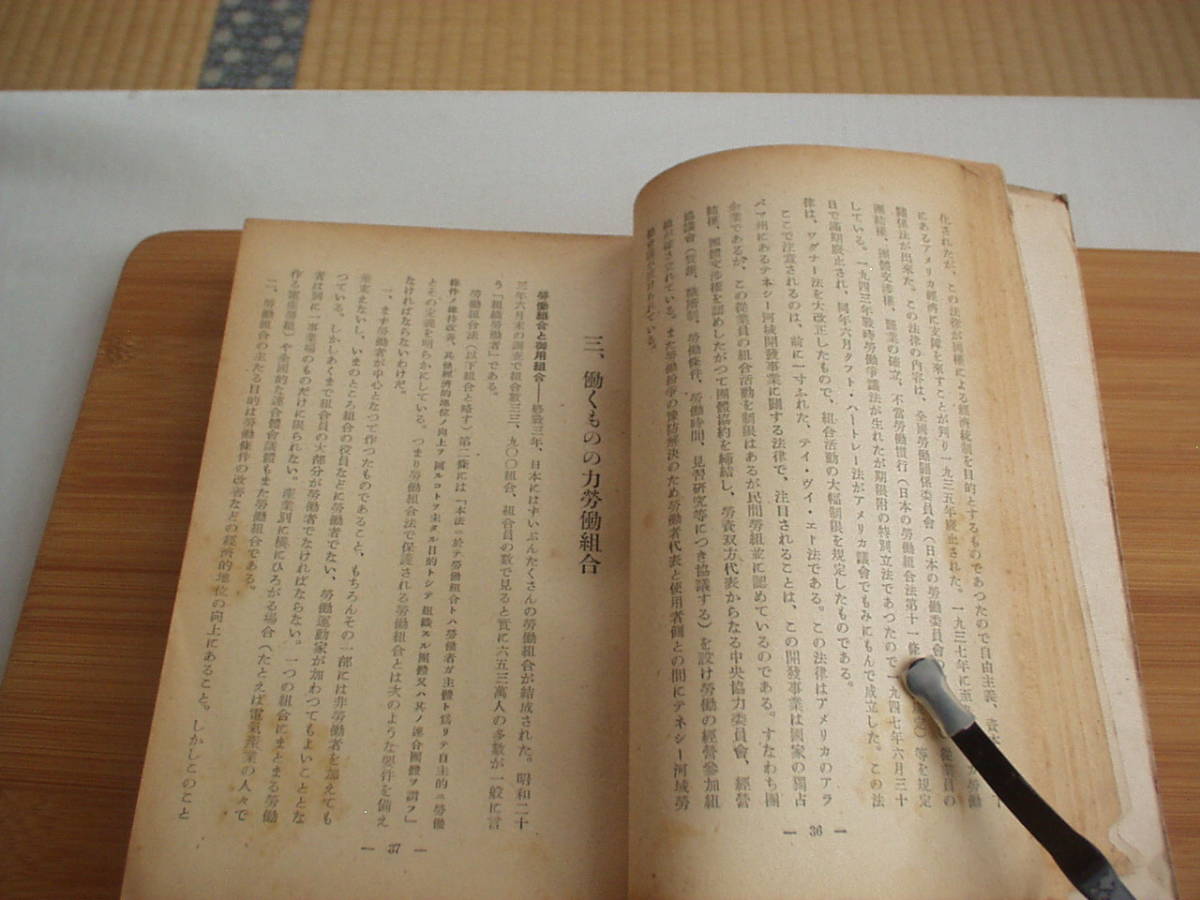 化されたが、この法律が國權による經濟統制を目的とするものであつたので自由主義、資本
にあるアメリカ經濟に支障を來すことが判り一九三五年廢止された。一九三七年に至
關係法が出來た。この法律の内容は、全國勞働關係委員會（日本の勞働委員會の
團結權、團體交渉權、罷業の確立、不當勞働慣行（日本の勞働組合法第十一條
している。一九四三年戰時勞働爭議法が生れたが期限附の特別立法であつたので一九四七年六月三十
日で滿期廢止され、同年六月タフト・ハートレー法がアメリカ議會でもみにもんで成立した。この法
律は、ワグナー法を大改正したもので、組合活動の大幅制限を規定したものである。
ここで注意されるのは、前に一寸ふれた、テイ・ヴイ・エー法である。この法律はアメリカのアラ
バマ州にあるテネシー河域開發事業に關する法律で、注目されることは、この開發事業は國家の獨占
企業であるが、この從業員の組合活動を制限はあるが民間勞組並に認めているのである。すなわち團
結權、團體交渉權を認めしたがつて團體協約を締結し、勞資双方代表からなる中央協力委員會、經營
協議會（賃銀、勞働條件、勞働時間、見習研究等につき協議する）を設け勞働の經營參加組
織が確立されている。また勞働紛爭の豫防解決のため勞働者代表と使用者側との間にテネシー河域勞
ている。
— 36 —
三、働くものの力勞働組合
勞働組合と御用組合——終戰三年、日本にはずいぶんたくさんの勞働組合が結成された。昭和二十
三年六月末の調査で組合數三三、九〇〇組合、組合員の數で見ると實に六五三萬人の多數が一般に言
う「組織勞働者」である。
勞働組合法（以下組合と略す）第二條には「本法ニ於テ勞働組合トハ勞働者ガ主體ト爲リテ自主的ニ勞働
條件ノ維持改善、其ノ他經濟的地位ノ向上ヲ圖ルコトヲ主タル目的トシテ組織スル團體又ハ其ノ連合團體ヲ謂フ」
とその定義を明らかにしている。つまり勞働組合法で保護される勞働組合とは次のような要件を備え
なければならないわけだ。
一、まず勞働者が中心となつて作つたものであること、もちろんその一部には非勞働者を加えても
差支えないし、いまのところ組合の役員などに勞働者でない、勞働運動家が加わつてもよいこととな
つている。しかしあくまで組合員の大部分が勞働者でなければならない。一つの組合にまとまる勞働
者は別に一事業場のものだけに限られない。産業別に横にひろがる場合（たとえば電氣産業の人々で
作る電産勞組）や全國的な連合體會議體もまた勞働組合である。
二、勞働組合の主たる目的は勞働條件の改善などの經濟的地位の向上にあること。しかしこのこと
— 37 —